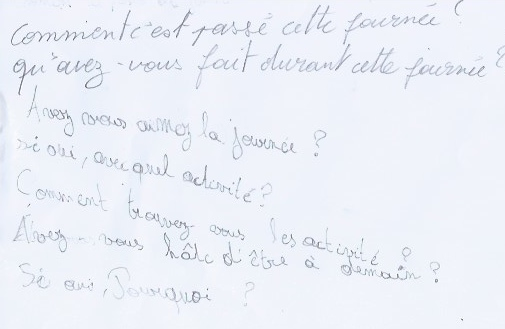 Comment c'est passé cette journée ?
qu'avez-vous fait durant cette journée ?
Avez vous aimez la journée ?
sé oui, avec quel activité ?
Comment trouvez vous les activité ?
Avez-vous hâte d'être à demain ?
Sé oui, Pourquoi ?